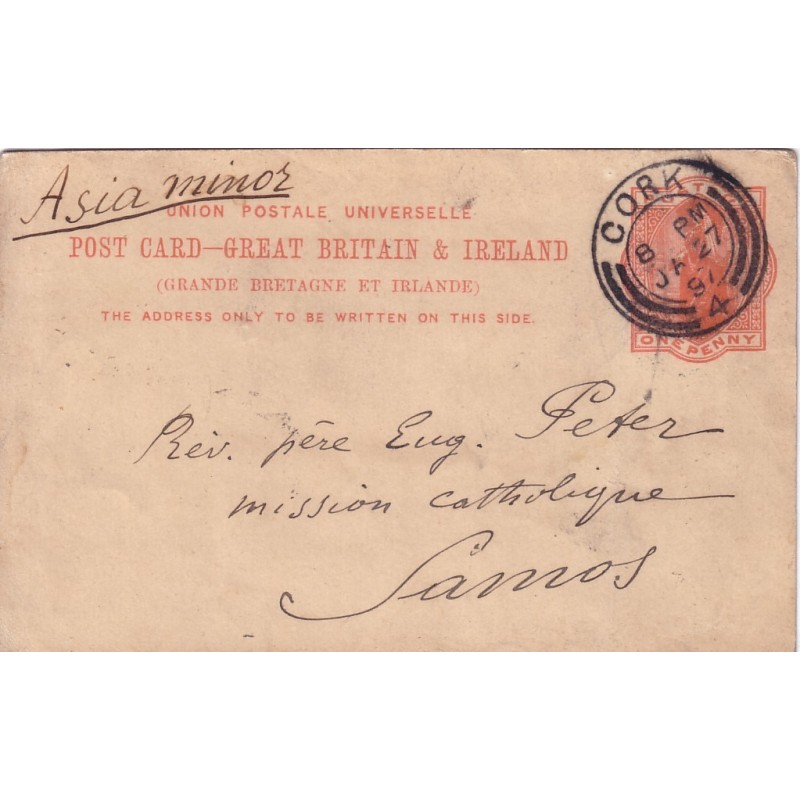 Asia minor
UNION POSTALE UNIVERSELLE
POST CARD—GREAT BRITAIN & IRELAND
(GRANDE BRETAGNE ET IRLANDE)
THE ADDRESS ONLY TO BE WRITTEN ON THIS SIDE.
CORK
8 PM
JA 27
97
4
ONE PENNY
Rév. père Eug. Peter
mission catholique
Samos